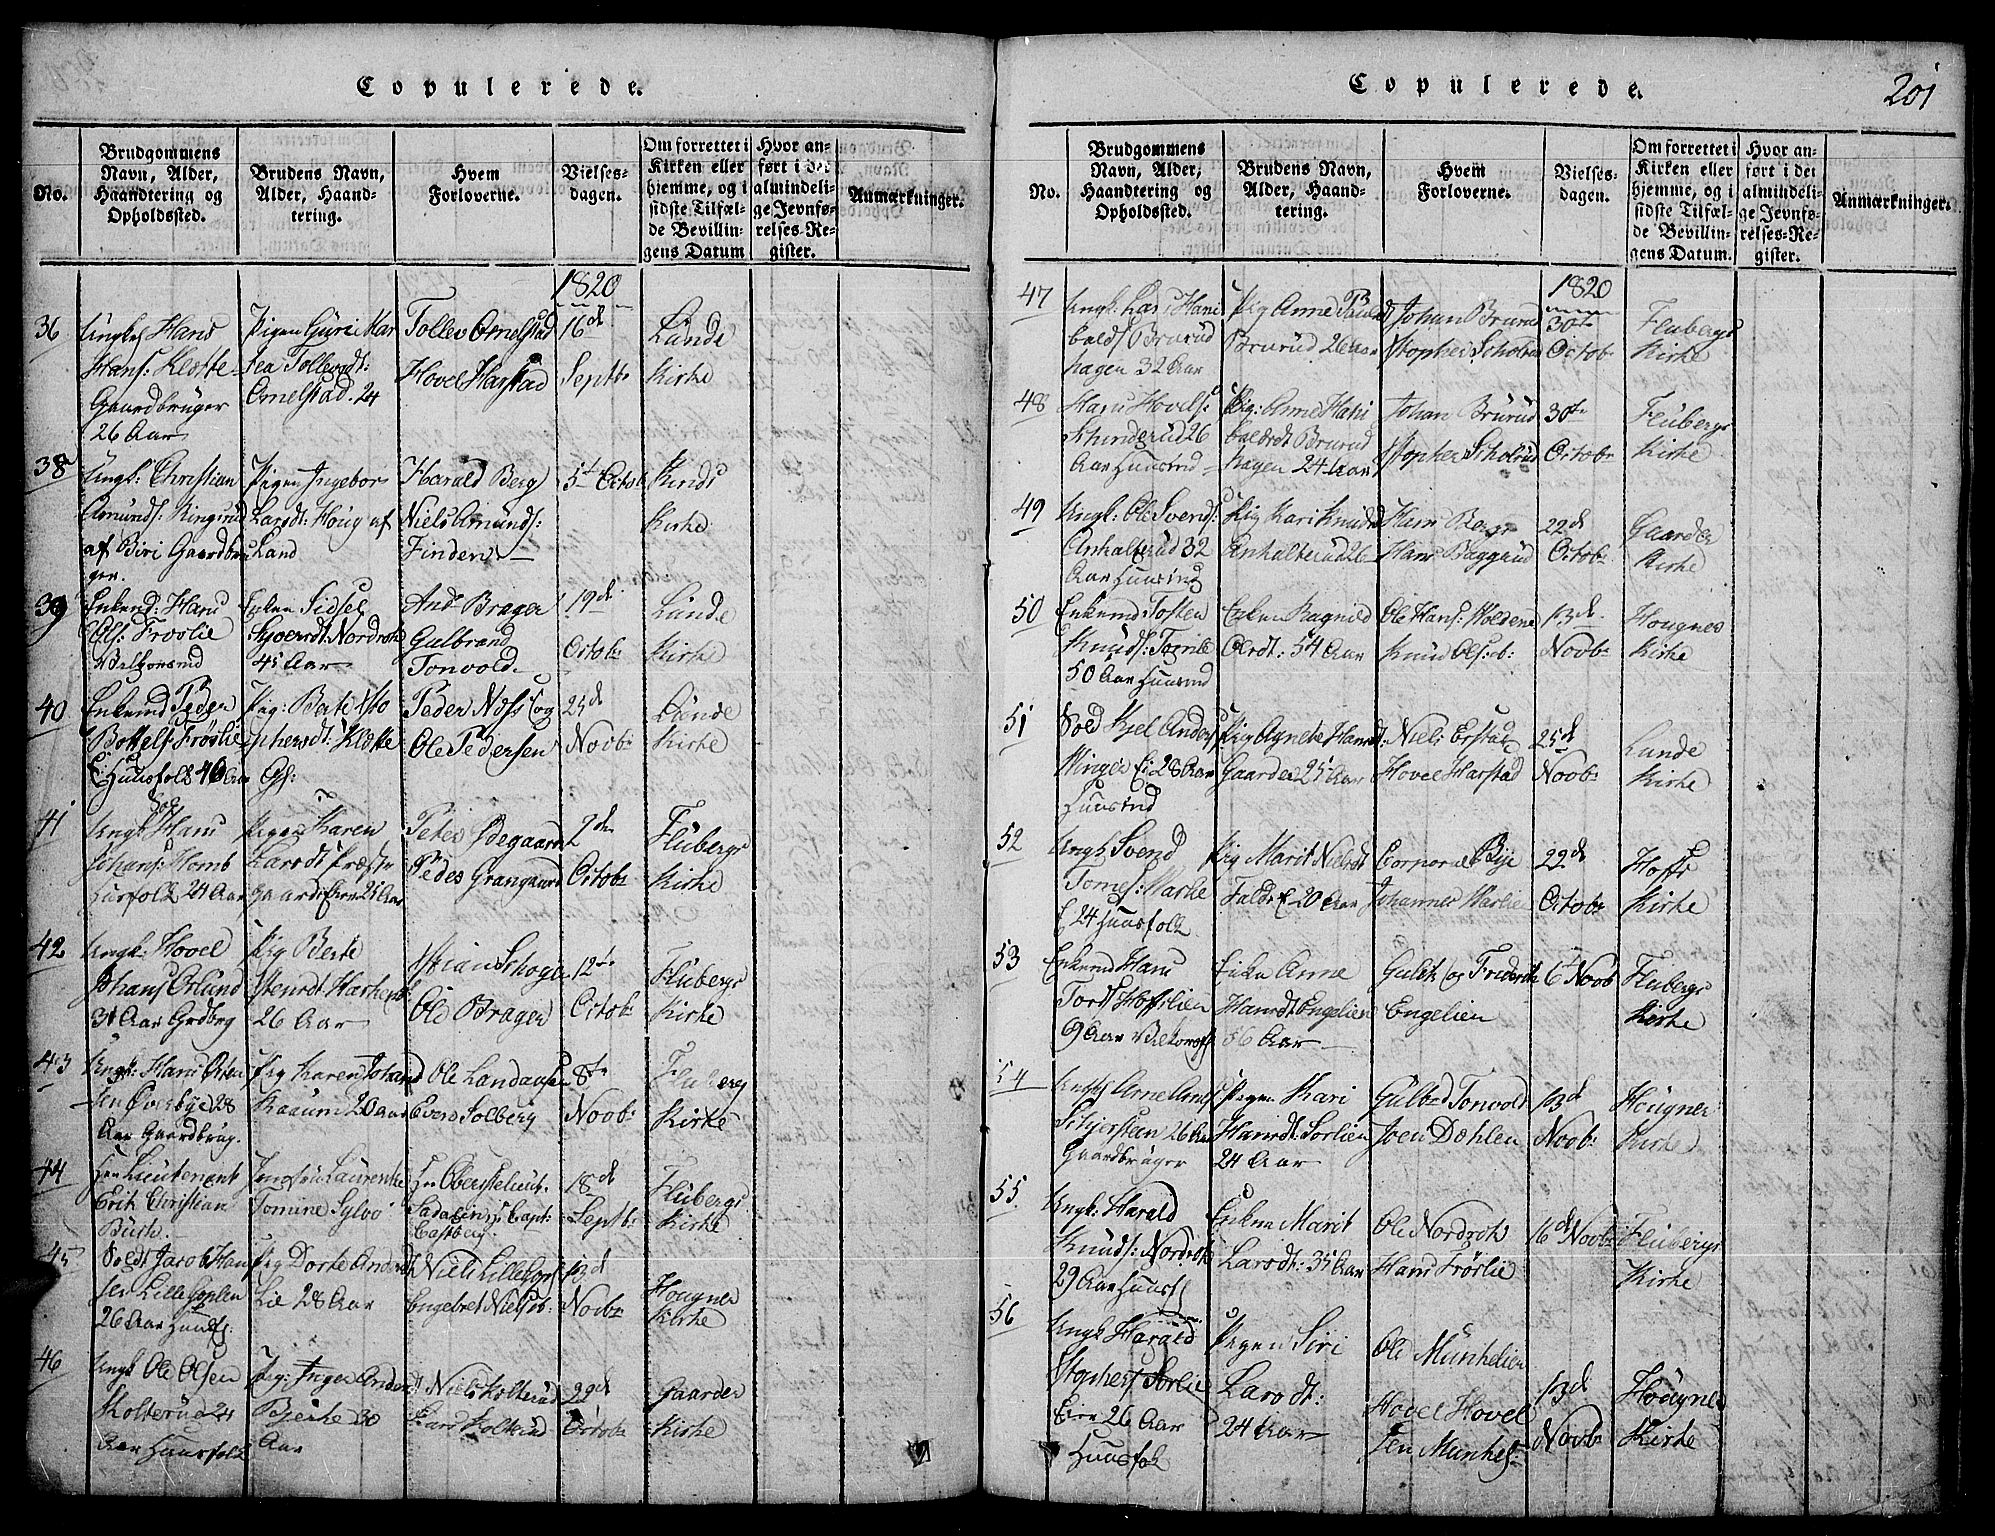 Copulerede.
No.
Brudgommens
Navn, Alder,
Haandtering og
Opholdssted.
Brudens Navn,
Alder, Haand-
tering.
Hvem
Forloverne.
Vielses-
dagen.
Om forrettet i
Kirken eller
hjemme, og i
sidste Tilfæl-
de Bevillin-
gens Datum
Hvor an-
ført i det
almindeli-
ge Jevnfø-
relses-Re-
gister.
Anmærkninger.
1820
36
Ungk Hans
Hans: Klette
Gaardbruger
26 Aar
Pigen Guri Mar
tea Tollevsdt:
Omelstad. 24
Tollev Omelstad
Hovel Harstad
16d
Septbr
Lunde
Kirke
38
Ungk: Christian
Amunds: Ringsrud
af Biri Gaardbru
ger.
Pigen Ingebor
Larsdt: Houg af
Land
Harald Berg
Niels Amunds:
Finden
5t Octob
Kinds
Kirke
39
Enkemd: Hans
Ols: Frøslie
Enken Sidsel
Sjoersdt. Nordrok
45 Aar
And Brager
Gulbrand
Tonvold
19de
Octobr
Lunde
Kirke
40
Enkemd Peder
Bottolfs Frøslie
E Huusfolk 46 Aar
Pig: Berte Sto
phersdt: Klette
Peder Noss og
Ole Pedersen
25d
Novbr
Lunde
Kirke
41
Ungk Hans
Johans: Homb
Husfolk 24 Aar
Pigen Karen
Larsdt Præste
gaards Eien 25 Aar
Peter Ødegaarn
Peder Grangaard
7de
Octobr
Flubergs
Kirke
42
Ungk: Hovel
Johans Orlund
31 Aar Grdbrg
Pig Berte
26 Aar
Stian Schoger
Ole Brager
12te
Octobr
Flubergs
Kirke
43
Ungk: Hans Osten
sen Øverbye 28
Aar Gaardbrug.
Pig Karen Johand
Kaaum 20 Aar
Ole Landaasen
Evers Solberg
8te
Novbr
Fluberg
Kirke
44
Hr: Lieutenant
Erik Christian
Jomfru Laurentze
Tomine Sylvo
Hr Oberstelieut.
Capt:
Castberg.
18d
Septbr
Flubergs
Kirke
45
Soldt Jacob Hans
sen Lille Goplen
26 Aar Huusf:
Pig Dorte Andersdt
Lie 28 Aar
Niels Lille Gopl
Engebret Nielseb:
13d
Novbr
Hougner
Kirke
46
Ungk Ole Olsen
Kolterud 24
Aar Huusfolk
Pig: Inger Andersd
Bjerke 30
Aar
Niels Kolterud
Lars Kolterud
22d
Octobr
Gaarder
Kirke
Copulerede.
201
No.
Brudgommens
Navn, Alder,
Haandtering og
Opholdssted.
Brudens Navn,
Alder, Haand-
tering.
Hvem
Forloverne.
Vielses-
dagen.
Om forrettet i
Kirken eller
hjemme, og i
sidste Tilfæl-
de Bevillin-
gens Datum.
Hvor an-
ført i det
almindeli-
ge Jevnfø-
relses-Re-
gister.
Anmærkninger.
1820
47
Ungk: Lars Hani
balds Brurud
hagen 32 Aar
Pig Anne
Brurud 26 Aar
Johan Brurud
Stopher Scholrud
30te
Octobr
Flubergs
Kirke
48
Hans Hovels:
Schinderud 26
Aar Huusmd
Pig: Anne Hani
baldsdt Brurud
hagen 24 Aar
Johan Brurud
Stopher Scholrud
30te
Octobr
Flubergs
Kirke
49
Ungk: Ole Svends:
Anhalterud 32
Aar Huusmd
Pig Kari Knudsd
Anhalterud 26
Hans Berge
Hans Baggrud
22d
Octobr
Gaarder
Kirke
50
Enkemd Tosten
Knuds: Tomle
50 Aar Huusmd
Enken Ragnild
Olsdt: 54 Aar
Ole Hans: Holdene
Knud Olseb:
13d
Novbr
Hougnes
Kirke
51
Sold Kjel Anders
Winger Ei 28 Aar
Huusmd
Pig Agnete Hansdt:
Gaarder 25 Aar
Niels Erstad
Hovel Harstad
25d
Novbr
Lunde
Kirke
52
Ungk Svend
Toms: Marke
E 24 Huusfolk
Pig Marit Nielsdt
Falds E 20 Aar
Corporal Bye
Johannes Harlie
22d
Octobr
Hoffs
Kirke
53
Enkemd Hans
Tords Hoffslien
69 Aar
Enken Anne
Hansdt. Engelien
56 Aar
Gulsk og Frederik
Engelien
6t Novb
Flubergs
Kirke
54
Ungk Arne Arns
26 Aar
Gaardbruger
Pigen Kari
Hansdt. Sorlien
24 Aar
Gulbd Tonvold
Joen Dohlen
13d
Novbr
Hougner
Kirke
55
Ungk: Harald
Knuds: Nordrok
29 Aar Huusf
Enkne Marit
Larsdt: 35 Aar
Ole Nordrok
Hans Frøslie
16d Novbr
Flubergs
Kirke
56
Ungk Harald
Stophers Sorlie
Eier 26 Aar
Huusfok
Pigen Siri
Larsdt:
24 Aar
Ole Munkelien
Hovel Hovel
sen Munkel:
13d
Novbr
Hougner
Kirke